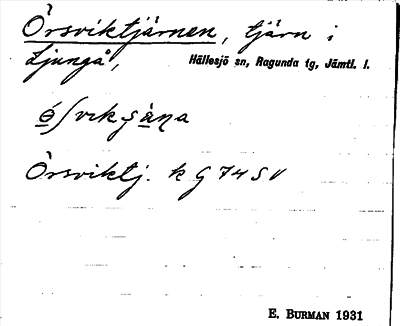 Örsviktjärnen, tjärn i
Ljungå, Hällesjö sn, Ragunda tg, Jämtl. l.
Örsviktj. k G 74 S V
E. BURMAN 1931